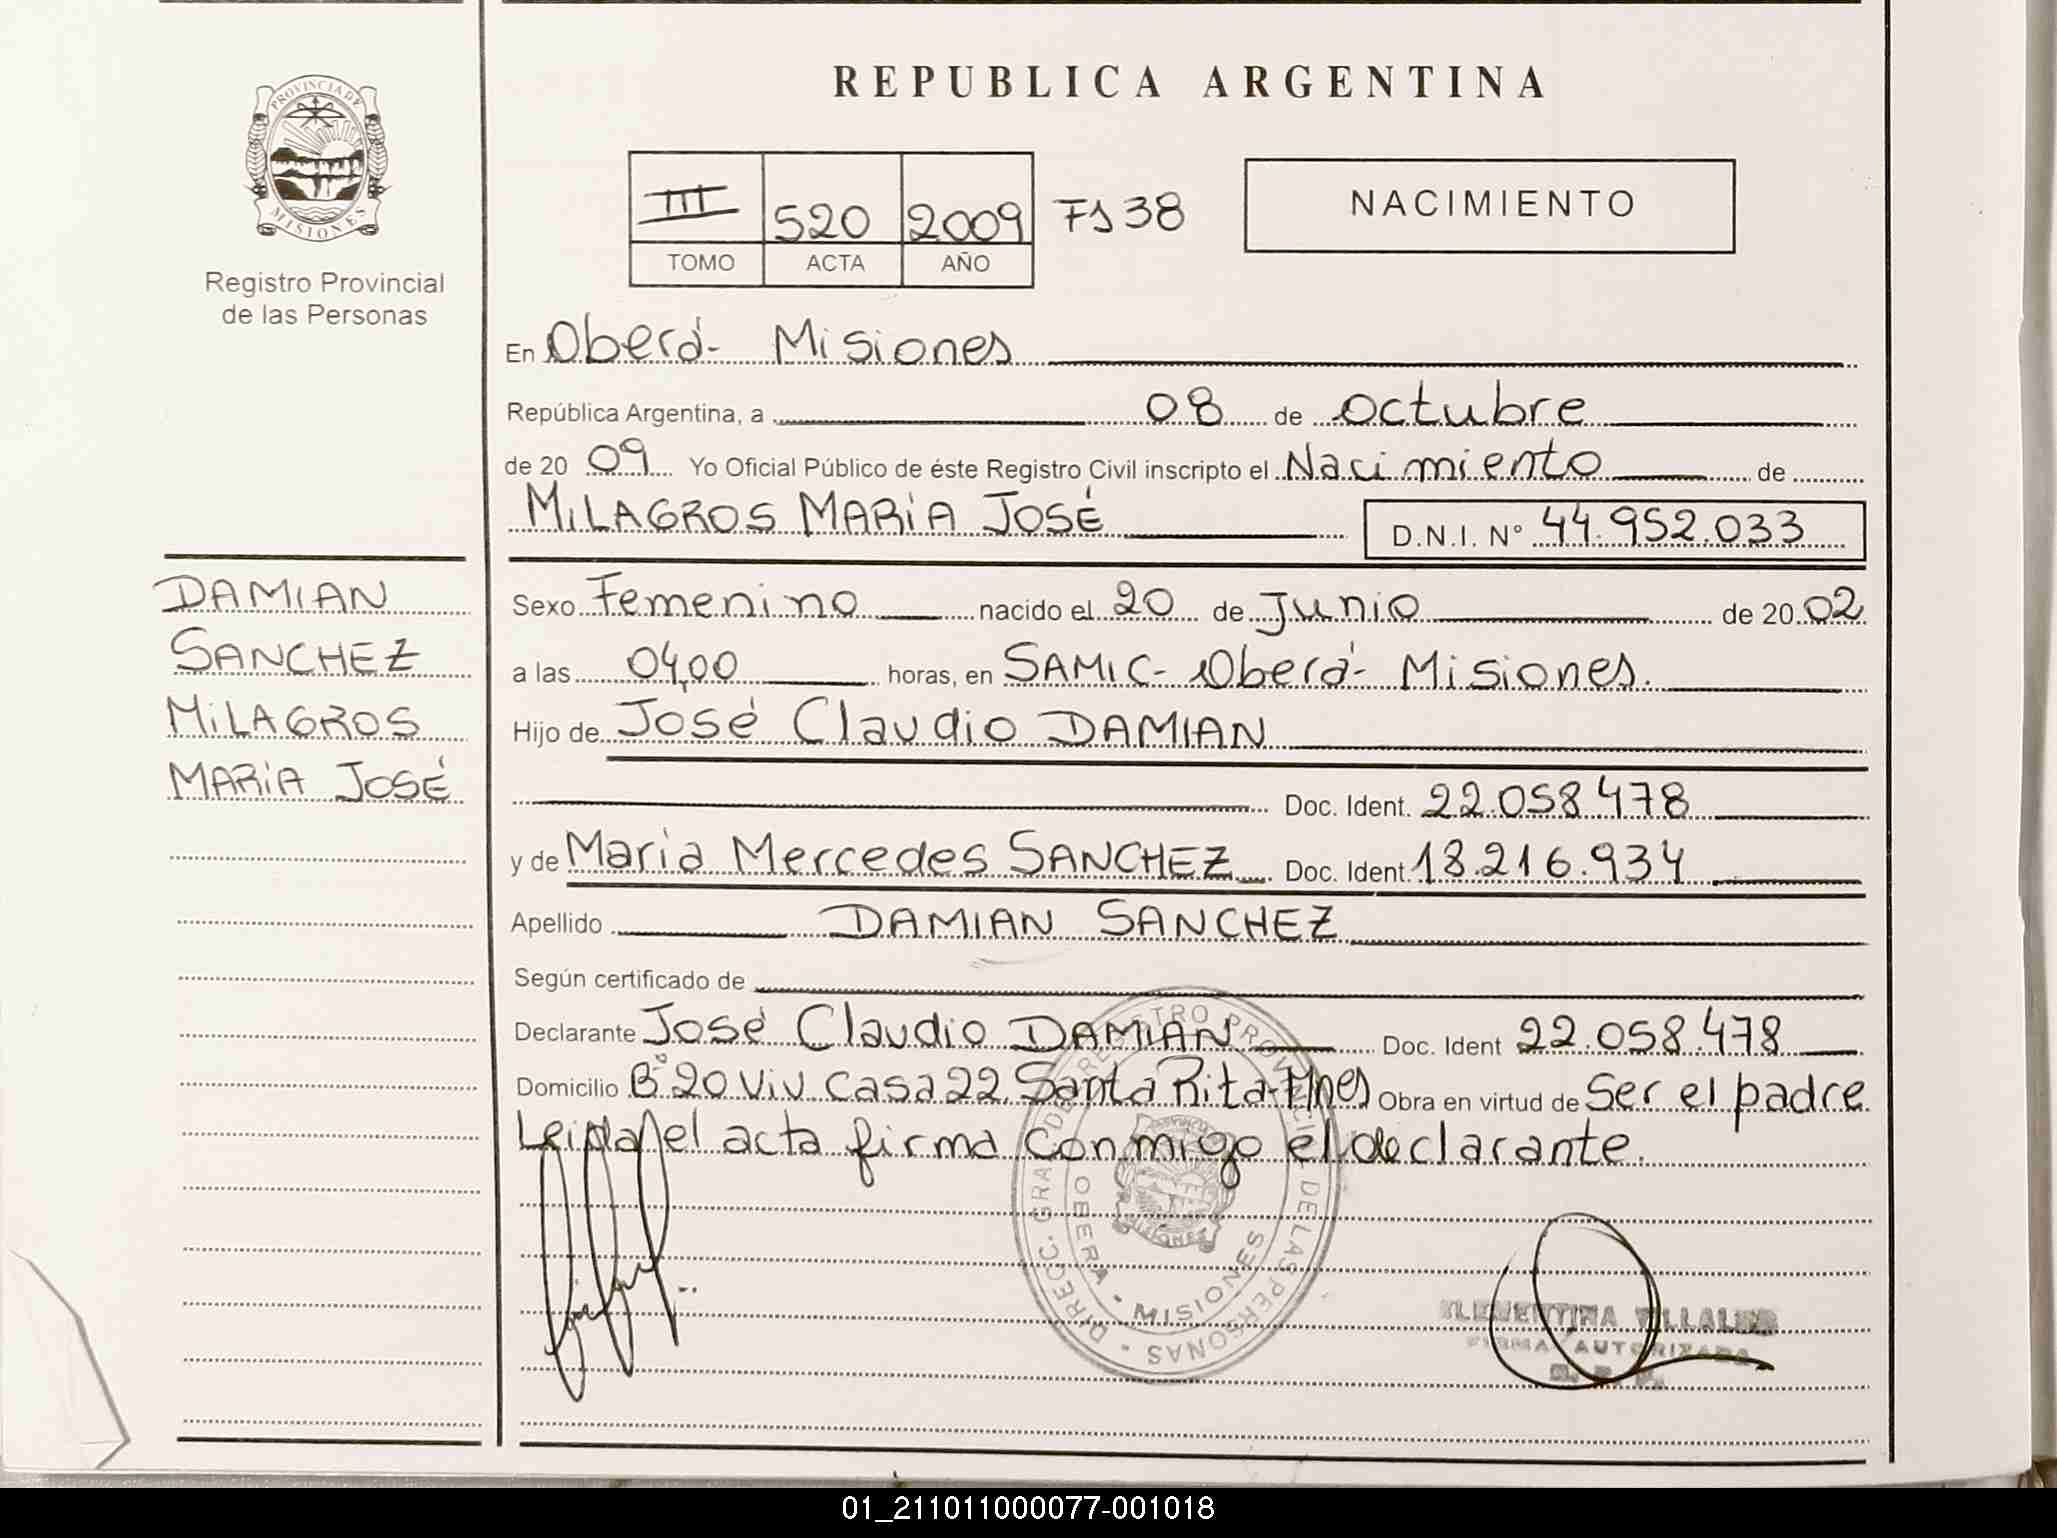 PROVINCIA DE
MISIONES
Registro Provincial
de las Personas
DAMIAN
SANCHEZ
MILAGROS
MARIA JOSÉ
REPUBLICA ARGENTINA
III 520 2009 FS 38
TOMO ACTA AÑO
NACIMIENTO
En Oberá- Misiones
República Argentina, a 08 de octubre
de 20 09 Yo Oficial Público de éste Registro Civil inscripto el Nacimiento de
MILAGROS MARIA JOSÉ D.N.I. Nº 44.952.033
Sexo Femenino nacido el 20 de Junio de 20 02
a las 04,00 horas, en SAMIC- Oberá- Misiones.
Hijo de José Claudio DAMIAN
Doc. Ident. 22.058.478
y de Maria Mercedes SANCHEZ Doc. Ident. 18.216.934
Apellido DAMIAN SANCHEZ
Según certificado de
Declarante José Claudio DAMIAN Doc. Ident 22.058.478
Domicilio Bº 20 Viv Casa 22 Santa Rita-Mnes Obra en virtud de Ser el padre
Leida el acta firma conmigo el declarante.
DIRECC. GRAL. DE REGISTRO PROVINCIAL DE LAS PERSONAS
OBERA - MISIONES
CLEMENTINA VILLALBA
FIRMA AUTORIZADA
01_211011000077-001018